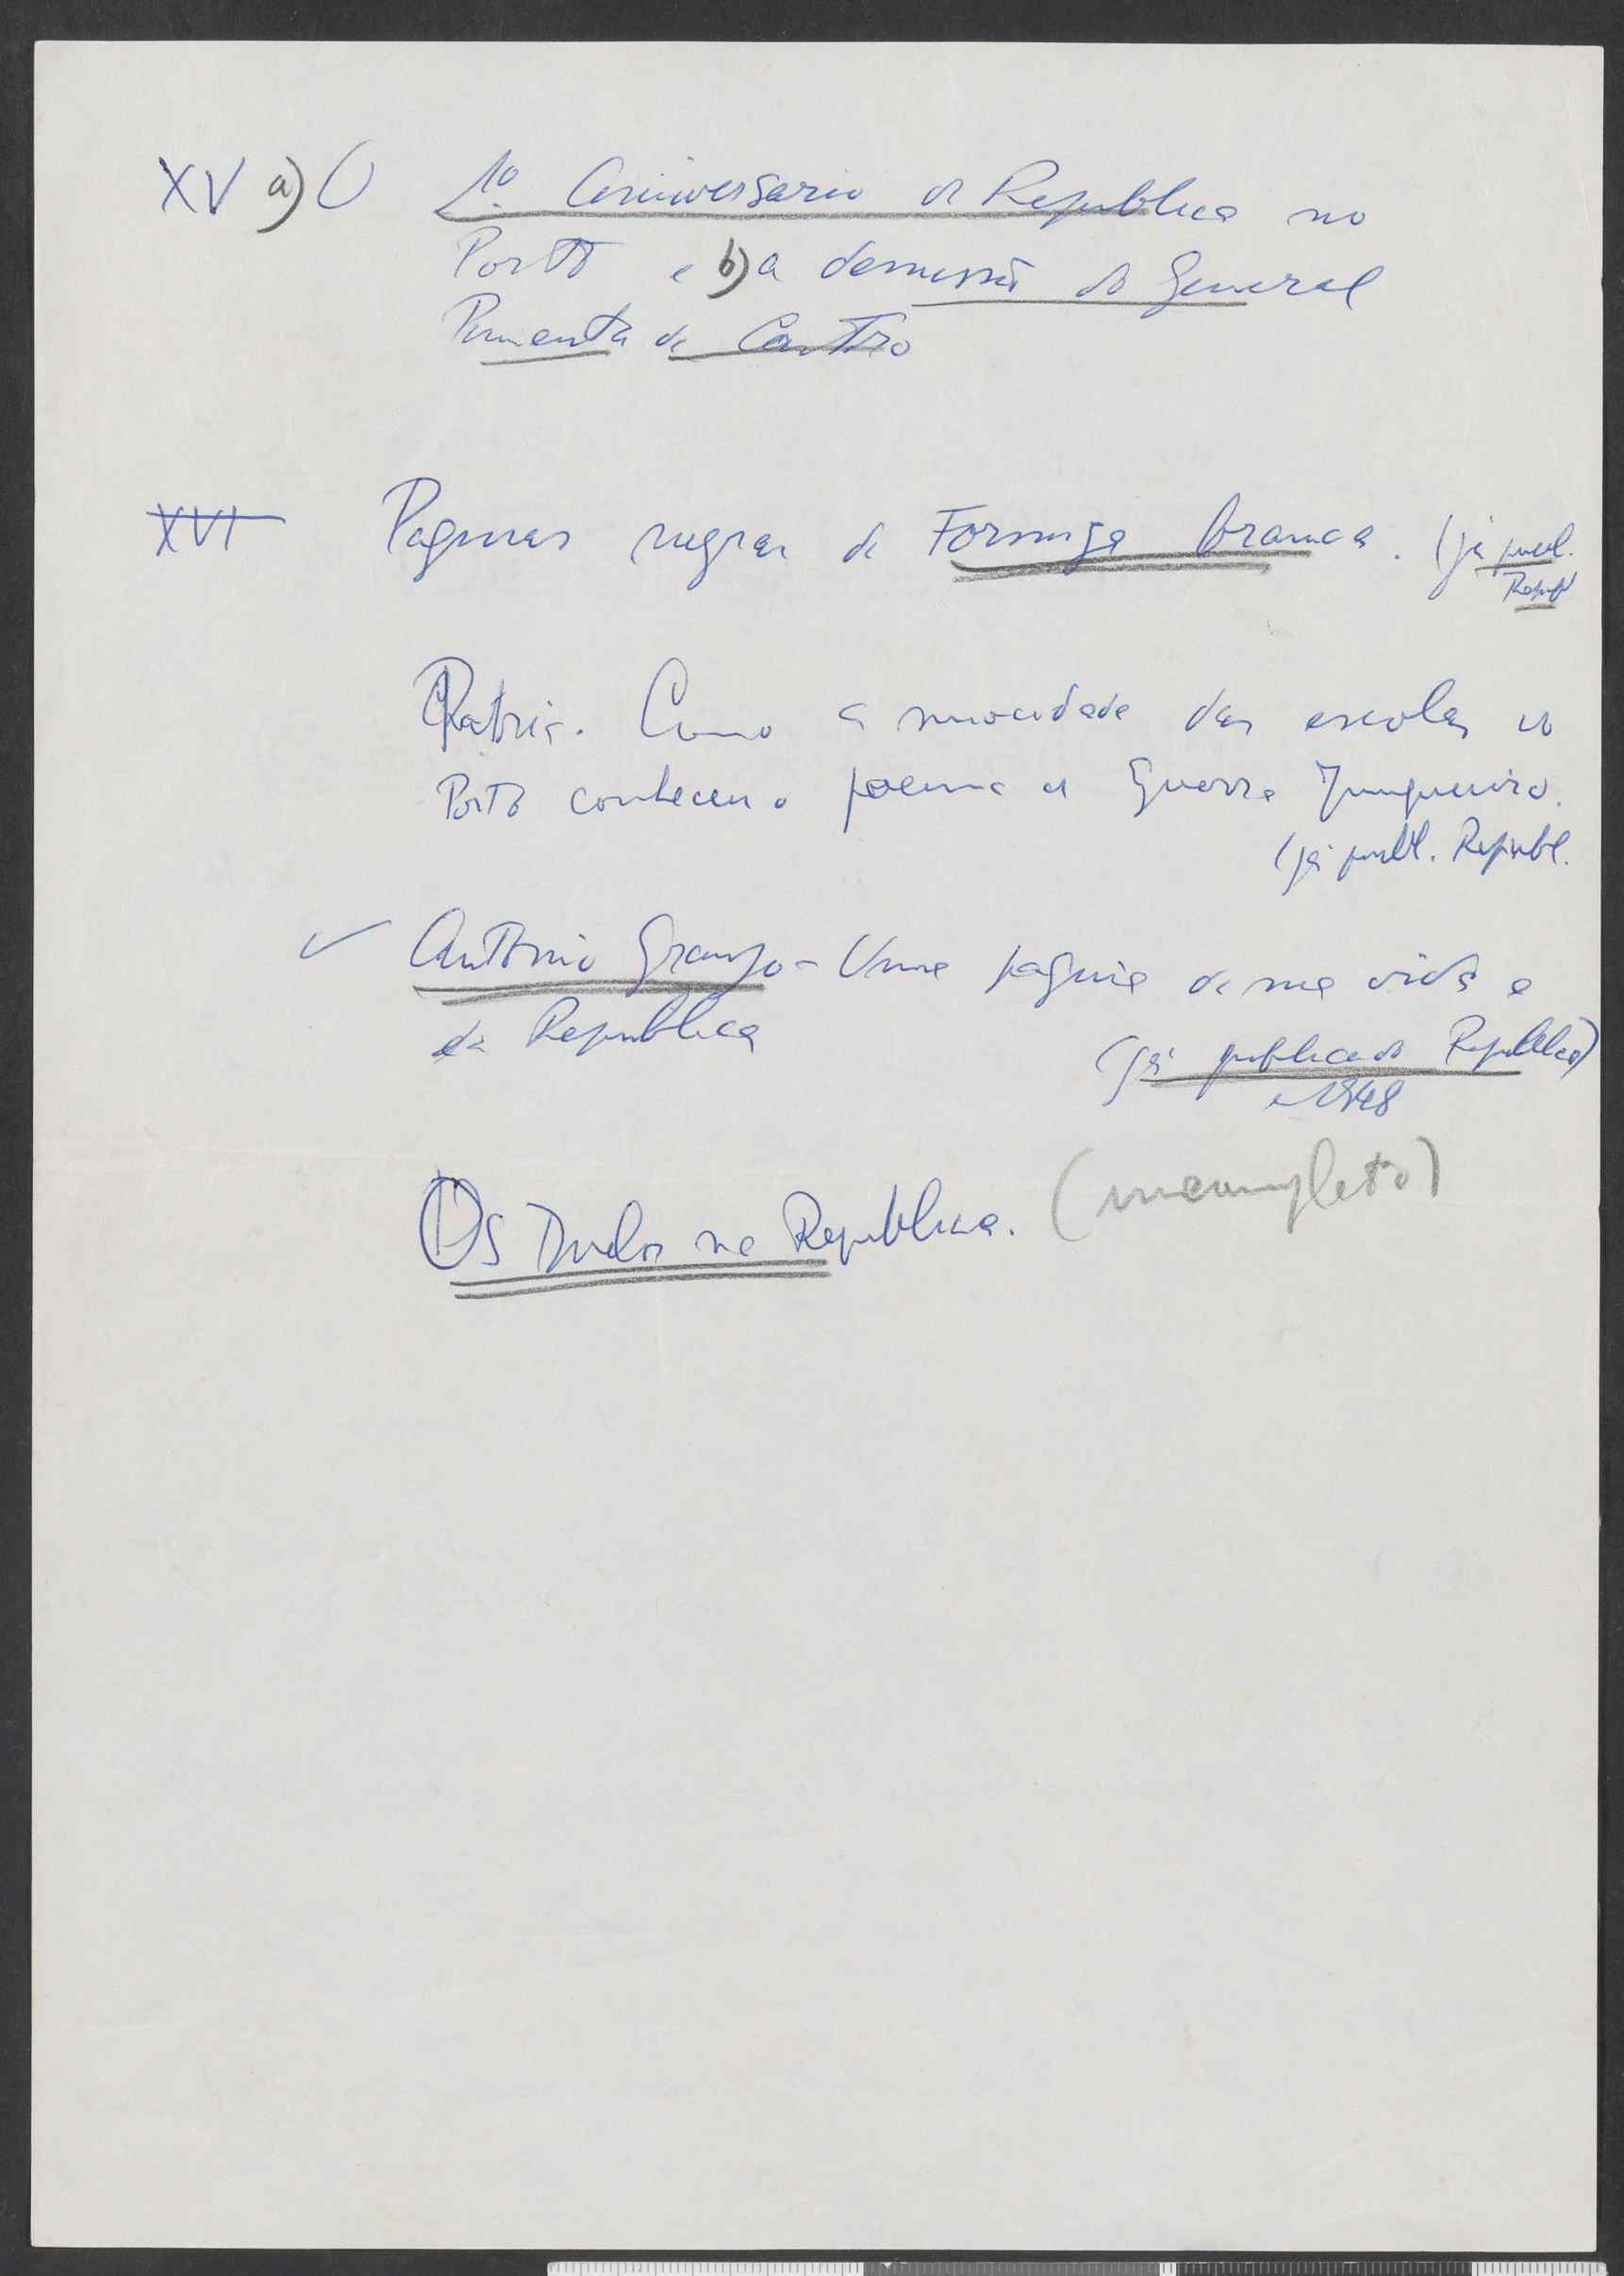 XV a) O 1º Aniversario da Republica no
Porto e b) a demissão do General
Pimenta de Castro
XVI Paginas negras da Formiga branca. (já publ.
Republ
Patria. Como a mocidade das escolas do
Porto conheceu o poema de Guerra Junqueiro.
(já publ. Republ.
✓ António Granjo - Uma página da sua vida e
da Republica
(já publicado Republica)
1948
Os Duelos na Republica. (incompleto)